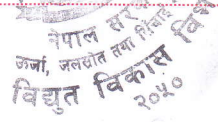 नेपाल सर
ऊर्जा, जलस्रोत तथा सिंचाई
विद्युत विकास वि
२०५०